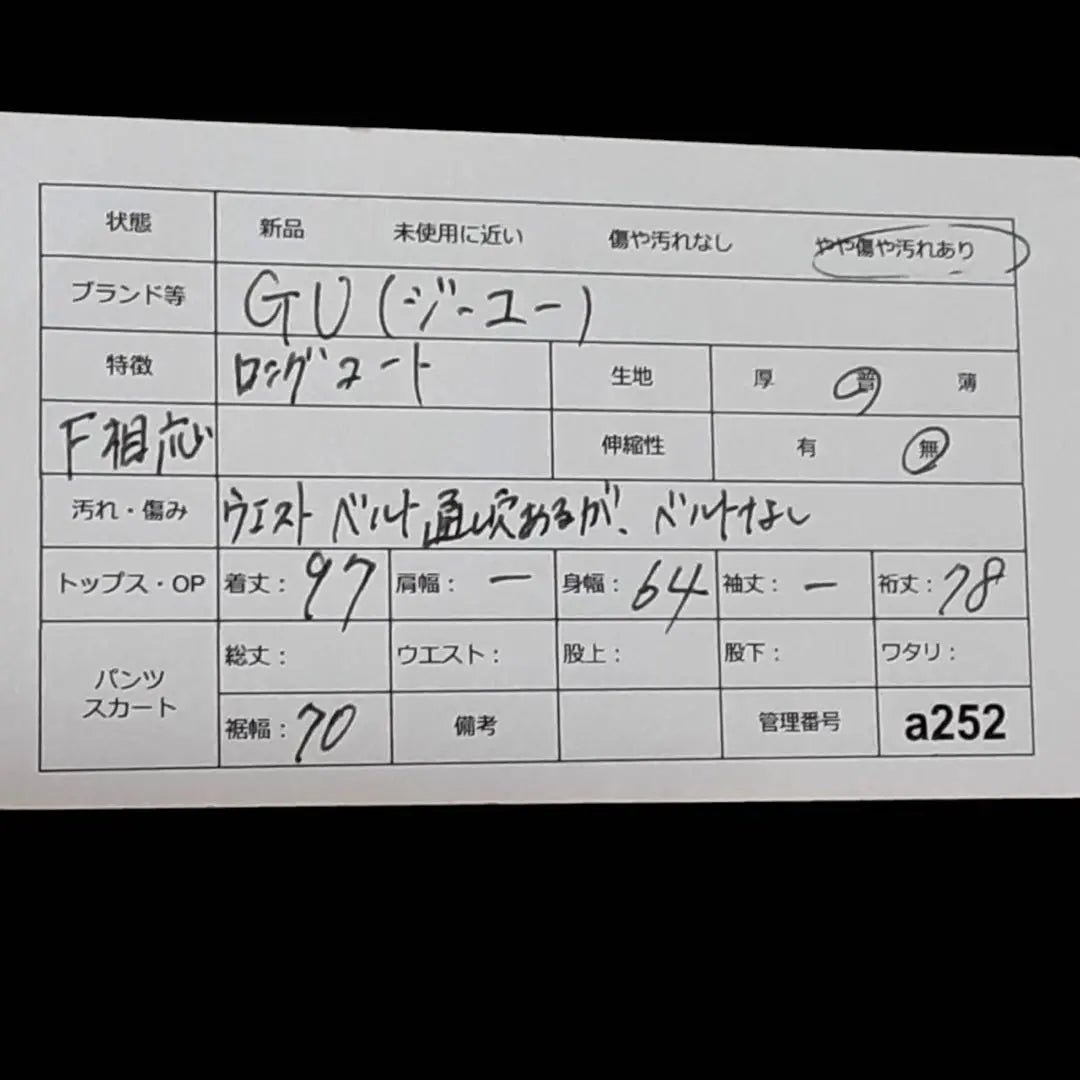 状態 新品 未使用に近い 傷や汚れなし やや傷や汚れあり
ブランド等 GU(ジーユー)
特徴 ロングコート 生地 厚 普 薄
F相応 伸縮性 有 無
汚れ・傷み ウエストベルト通し穴あるが、ベルトなし
トップス・OP 着丈: 97 肩幅: ー 身幅: 64 袖丈: ー 裄丈: 78
パンツ スカート 総丈: ウエスト: 股上: 股下: ワタリ:
裾幅: 70 備考 管理番号 a252